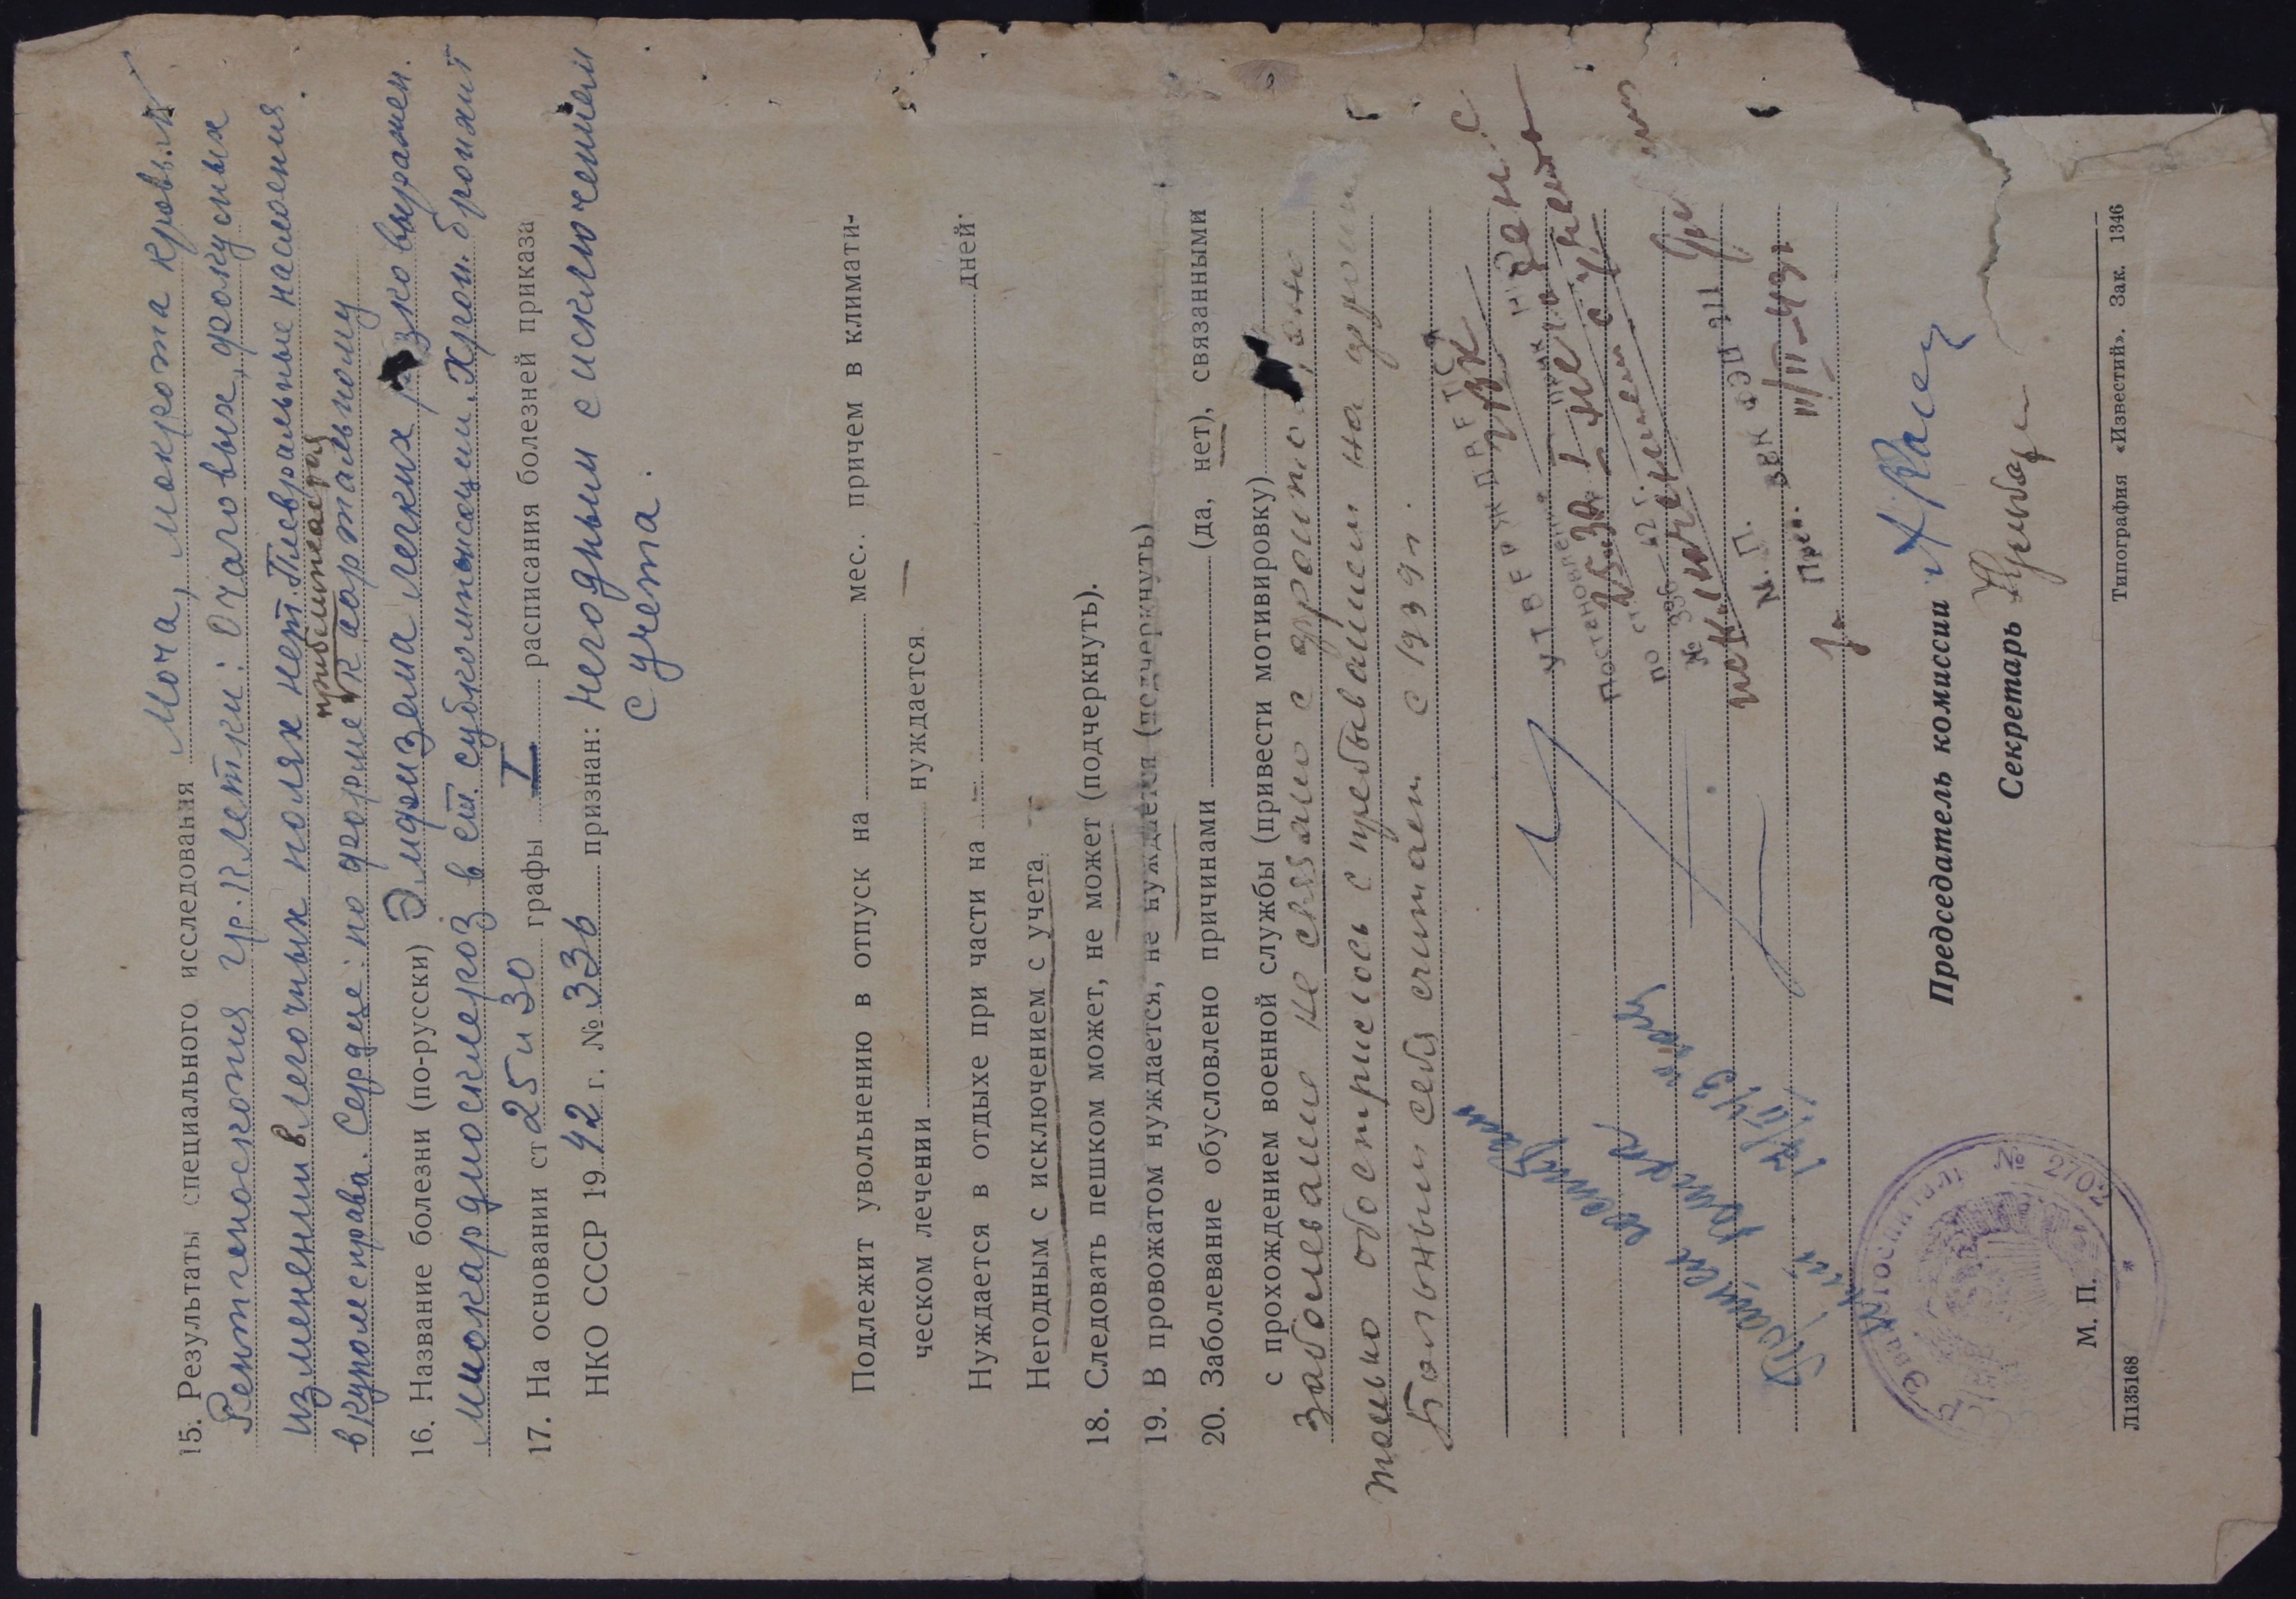 15. Результаты специального исследования Моча, мокрота, кровь
Рентгеноскопия гр. клетки: Очаговых, фокусных
изменений в легочных полях нет. Плевральные наслоения
в куполе справа. Сердце: по форме приближается к аортальному
16. Название болезни (по-русски) Эмфизема легких резко выражен.
миокардиосклероз в ст. субкомпенсации. Хрон. бронхит
17. На основании ст 25 и 30 графы I расписания болезней приказа
НКО СССР 1942 г. № 336 признан: негодным с исключением
с учета.
Подлежит увольнению в отпуск на мес. причем в климати-
ческом лечении нуждается
Нуждается в отдыхе при части на дней
Негодным с исключением с учета
18. Следовать пешком может, не может (подчеркнуть).
19. В провожатом нуждается, не нуждается (подчеркнуть)
20. Заболевание обусловлено причинами (да, нет), связанными
с прохождением военной службы (привести мотивировку)
Заболевание не связано с фронтом, оно
только обострилось с пребыванием на фронте
Больным себя считает с 1939 г.
УТВЕРЖДАЕТСЯ
Постановлен
по ст. 25 и 30 I
№ 336—42 г.
исключением с учета
М. П.
Пред. ВВК ФЭП
III—43 г.
Председатель комиссии
Секретарь
Эвакогоспиталь №
М. П.
Л135168 Типография «Известий». Зак. 1346